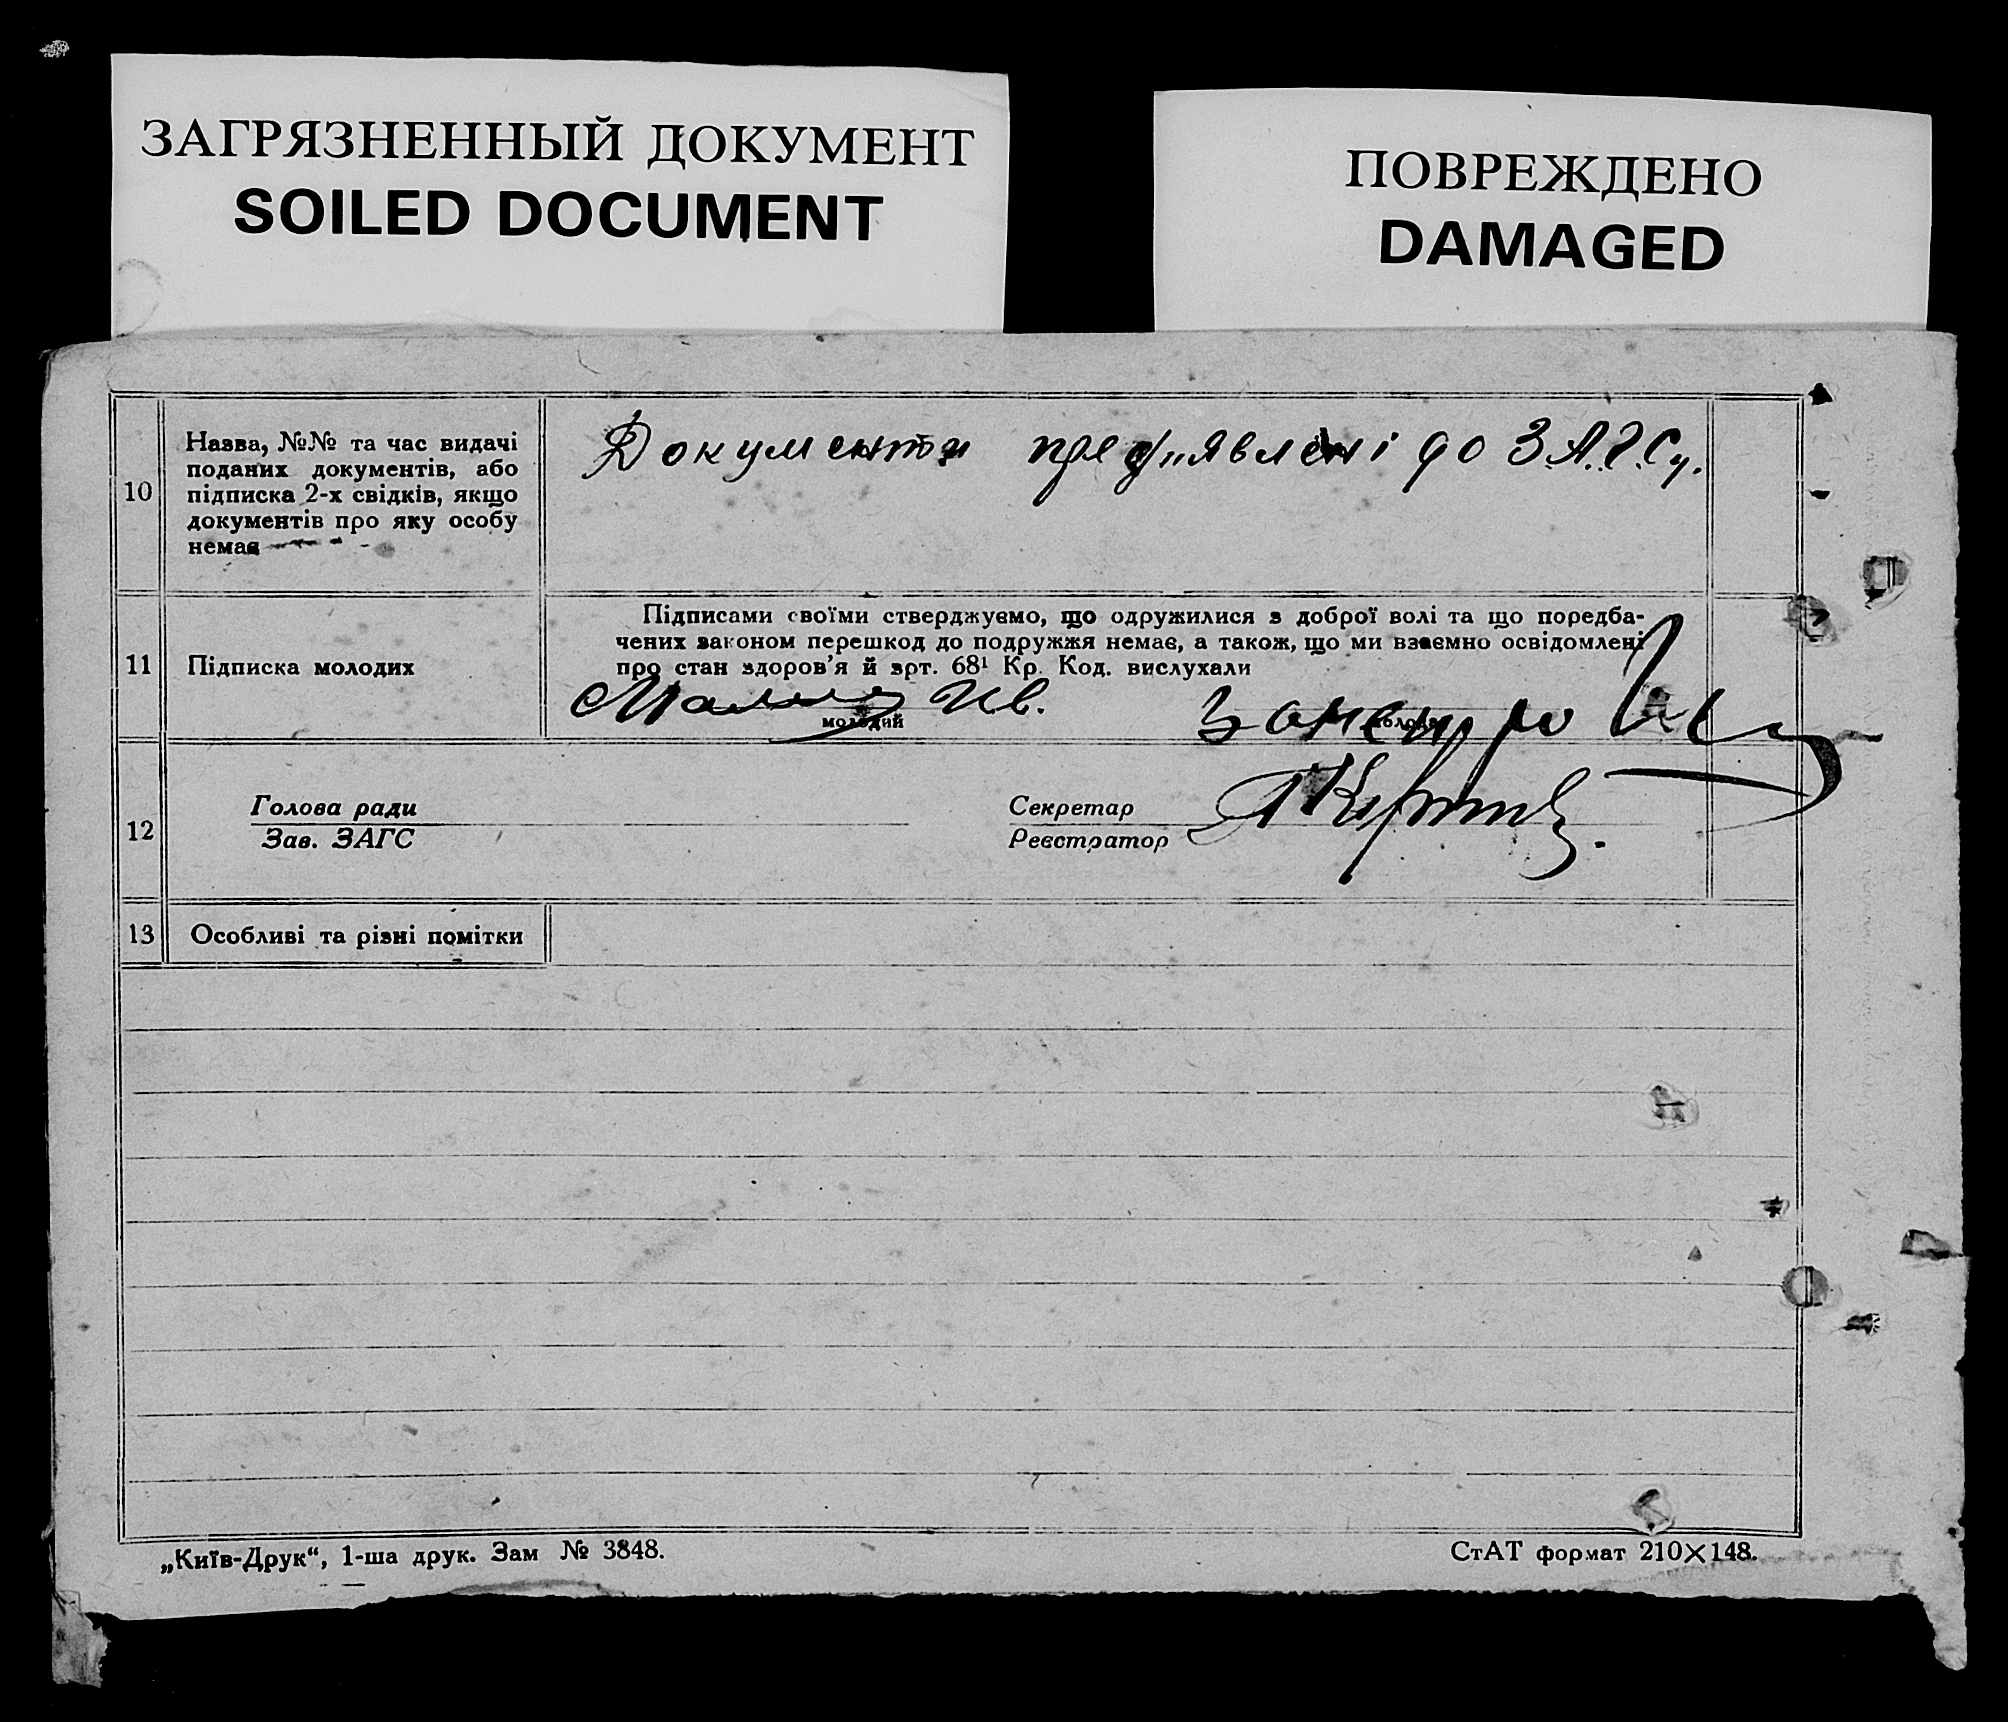 ЗАГРЯЗНЕННЫЙ ДОКУМЕНТ
SOILED DOCUMENT
ПОВРЕЖДЕНО
DAMAGED
10
Назва, №№ та час видачі
поданих документів, або
підписка 2-х свідків, якщо
документів про яку особу
немає
Документи пред'явлені до З.А.Г.Су.
11
Підписка молодих
Підписами своїми стверджуємо, що одружилися з доброї волі та що поредба-
чених законом перешкод до подружжя немає, а також, що ми взаємно освідомлені
про стан здоров'я й арт. 68¹ Кр. Код. вислухали
Ив.
молодий
молода
12
Голова ради
Зав. ЗАГС
Секретар
Реєстратор
13
Особливі та різні помітки
„Київ-Друк“, 1-ша друк. Зам № 3848.
СтАТ формат 210×148.